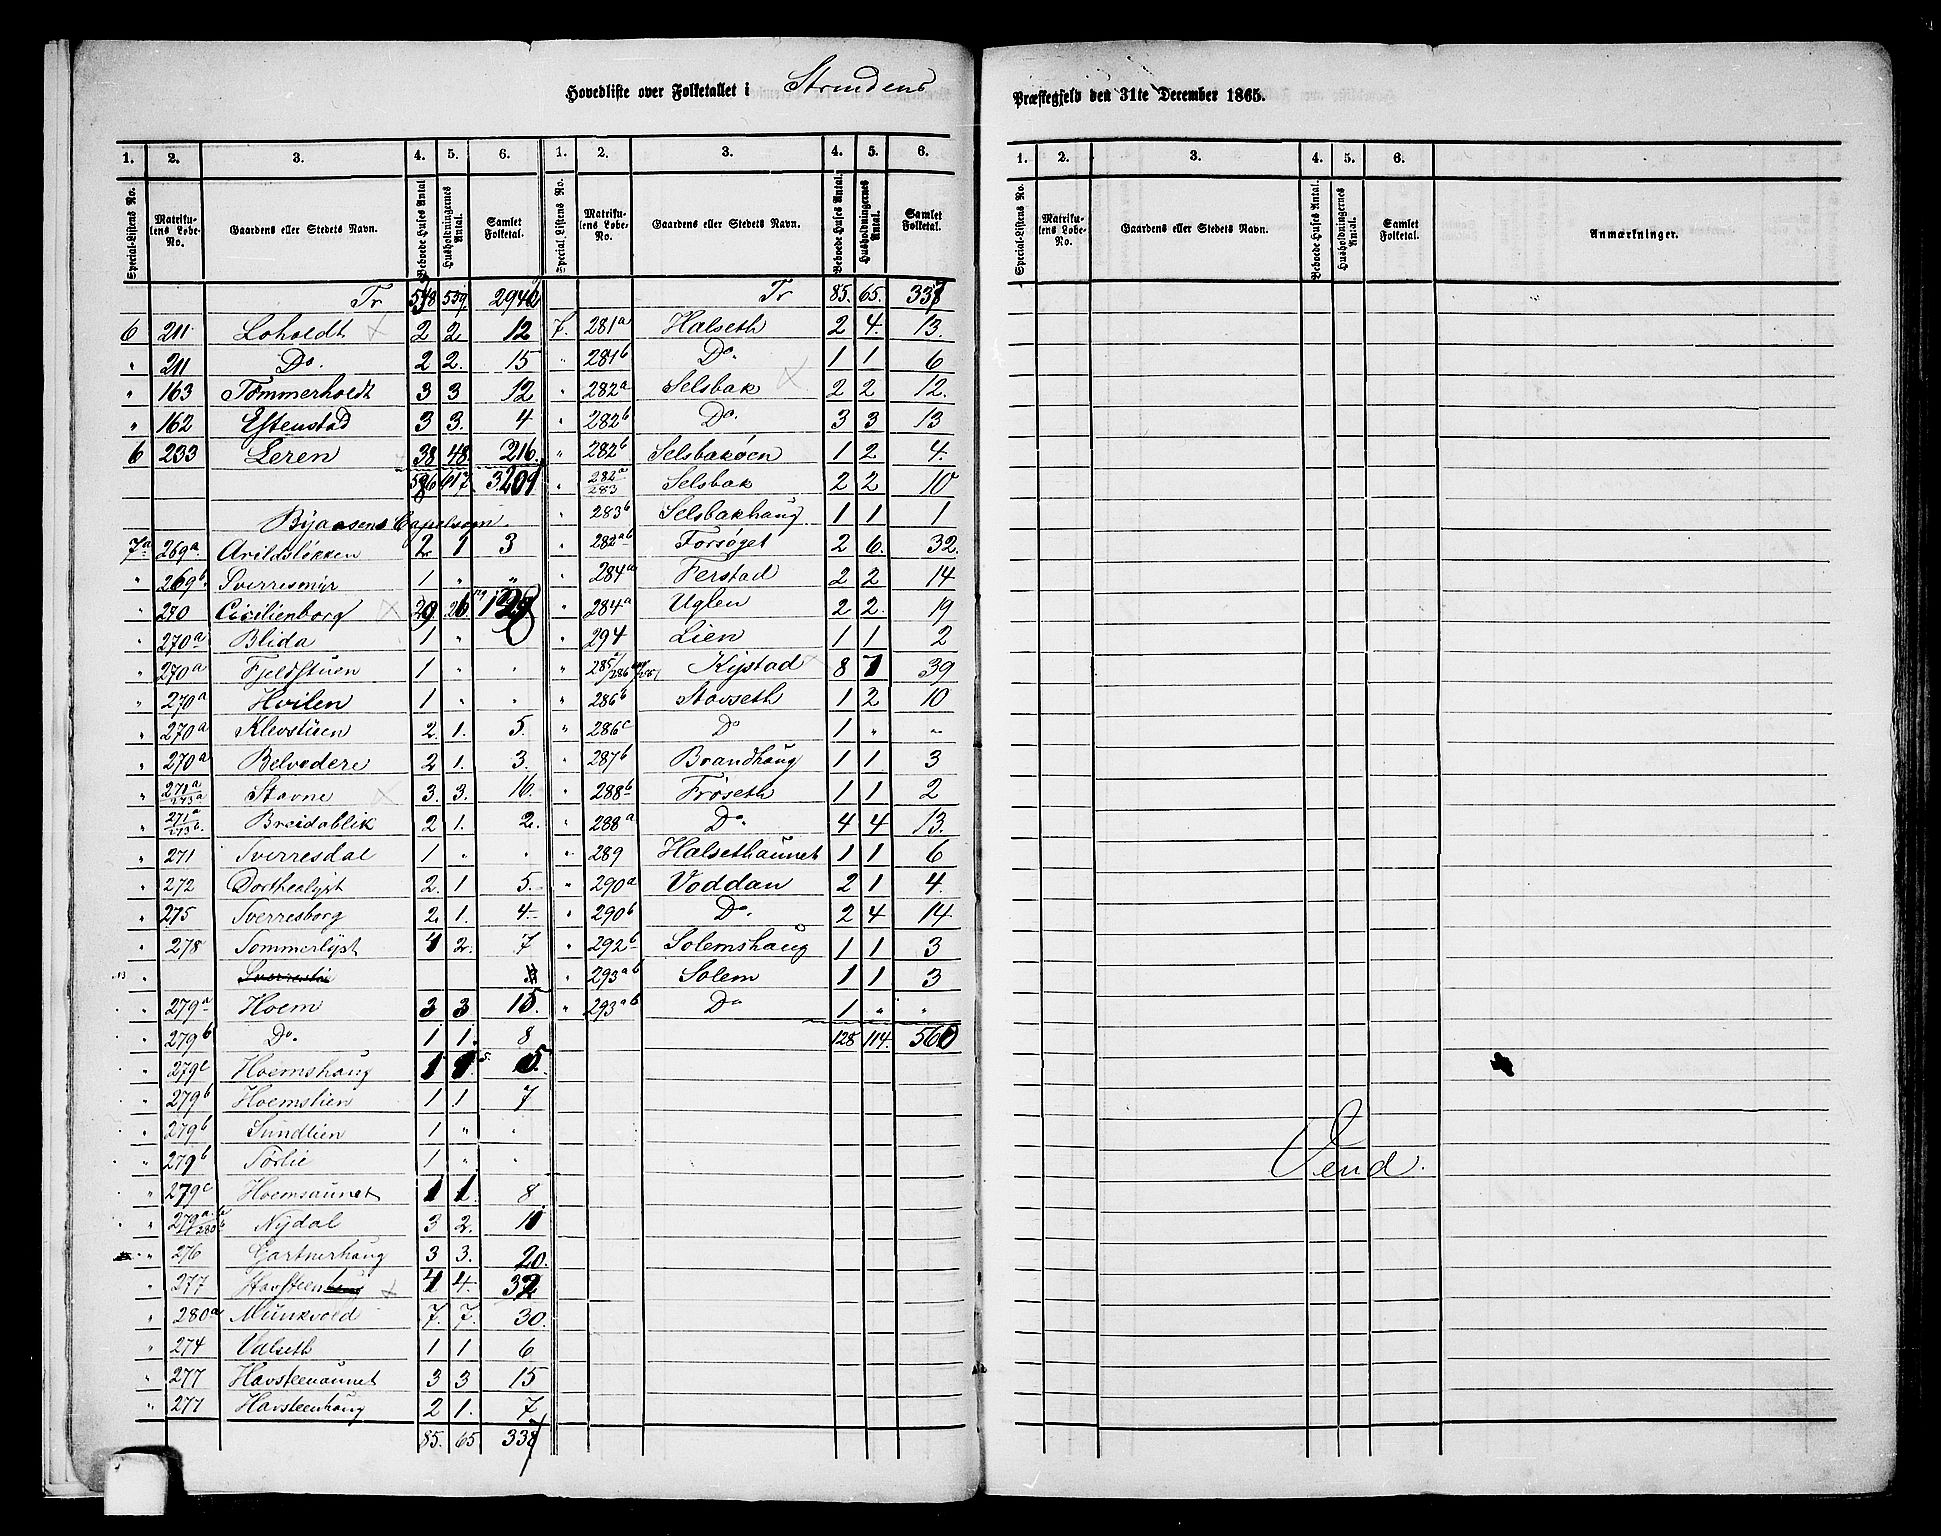 Hovedliste over Folketallet i Strindens Præstegjeld den 31te December 1865.
1. 2. 3. 4. 5. 6. 1. 2. 3. 4. 5. 6.
Special-Listens No. Matrikulens Løbe-No. Gaardens eller Stedets Navn. Beboede Huses Antal Husholdningernes Antal. Samlet Folketal. Special Listens No. Matrikulens Løbe-No. Gaardens eller Stedets Navn. Beboede Huses Antal. Husholdningernes Antal. Samlet Folketal.
Tr 559.
6 211 Loholdt 2 2 12
" 211 Do. 2 2. 15
" 163 Tømmerholdt 3 3 12
" 162 Estenstad 3 3. 4
6 233 Leren 38 48. 216.
617. 3209
Byaasens Capelsogn
7a 269a. Arildsløkken 2 1 3
" 269b. Sverresmyr 1 " "
" 270 Cicilienborg 29 26
" 270a Blida 1 "
" 270a Fjeldstuen 1 " "
" 270a Hvilen 1 " "
" 270a Klevstuen 2. 1. 5.
" 270a Belvedere 2 1. 3.
" 271a/273a Stavne 3. 3. 16.
" 271a/273b. Breidablik 2 1. 2.
" 271 Sverresdal 1 " "
" 272 Dorthealyst 2. 1 5.
" 275 Sverresborg 2 1. 4
" 278 Sommerlyst 4 2. 7
" Sverreslie
" 279a Hoem 3 3 15.
" 279b Do. 1 1. 8
" 279c Hoemshaug 1 1 5.
" 279b Hoemslien 1 1 7
" 279b Sundlien 1 " "
" 279b Sørlie 1 " "
" 279c Hoemsaunet 1 1. 8
" Nydal 3 2. 11
" 276 Gartnerhaug 3 3. 20.
" 277 Havsteen 4 4. 32
" 280a Munkvold 7. 7. 30.
" 274 Valseth 1 1 6
" 277 Havsteenaunet 3 3 15
" 277 Havsteenhaug 2 1. 7
85. 65. 338
Tr 85. 65. 337
7. 281a Halseth 2 4. 13.
" 281b Do. 1 1 6
" 282a Selsbak 2 2 12.
" 282b Do. 3 3 13
" 282b Selsbakøen 1 2 4.
" 282a/283 Selsbak 2 2 10
" 283b Selsbakhaug 1 1 1
" 282ab Forsøget 2 6. 32.
" 284a Ferstad 2 2 14
" 284a Uglen 2 2. 19
" 294 Lien 1 1 2
" Kystad 8 7 39
" 286b Stavseth 1 2 10
" 286c Do 1 " "
" 287b Brandhaug 1 1 3
" 288b Frøseth 1 1 2
" 288a Do. 4 4 13.
" 289 Halsethaunet 1 1 6
" 290a Voddan 2 1 4.
" 290b Do. 2 4 14
" 292b Solemshaug 1 1 3
" 293ab Solem 1 1 3
" 293ab Do 1 " "
128 114. 560
1. 2. 3. 4. 5. 6.
Special-Listens No. Matrikulens Løbe-No. Gaardens eller Stedets Navn. Beboede Huses Antal. Husholdningernes Antal. Samlet Folketal. Anmærkninger.
Vend.